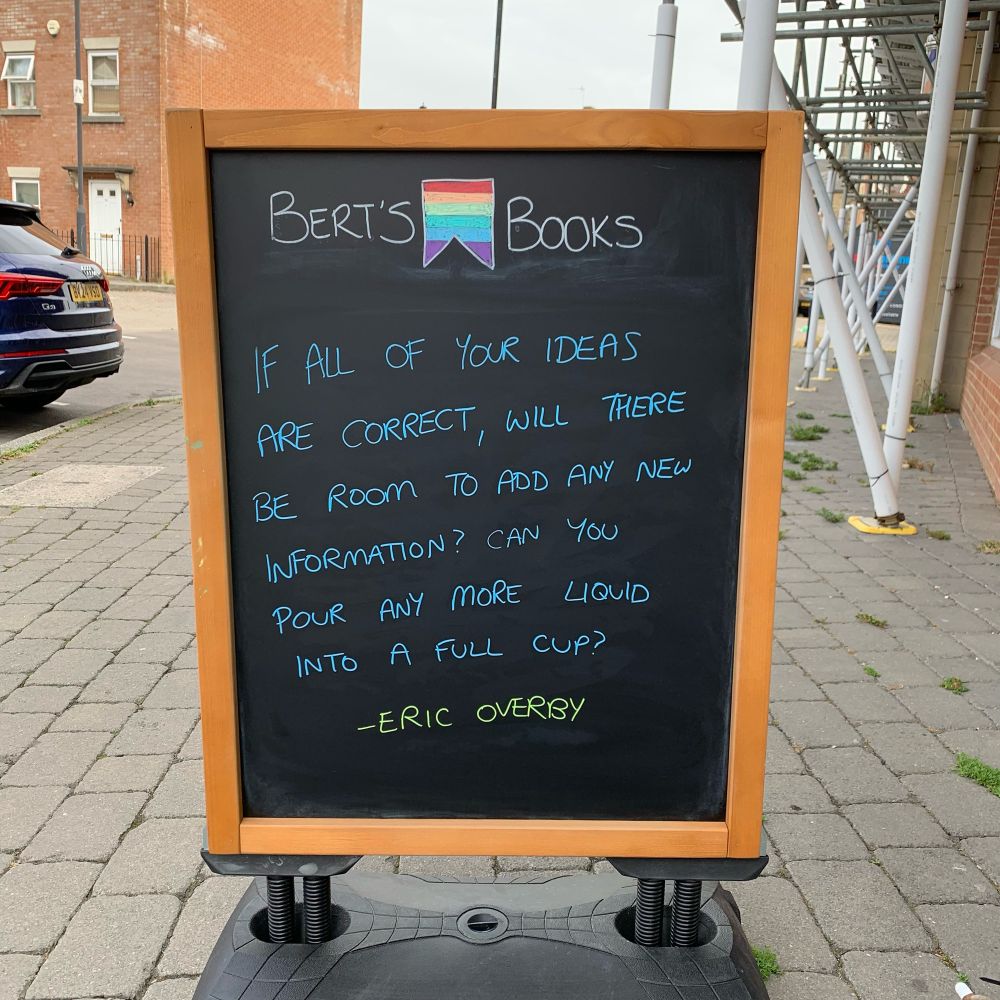 BERT'S BOOKS
IF ALL OF YOUR IDEAS
ARE CORRECT, WILL THERE
BE ROOM TO ADD ANY NEW
INFORMATION? CAN YOU
POUR ANY MORE LIQUID
INTO A FULL CUP?
-ERIC OVERBY